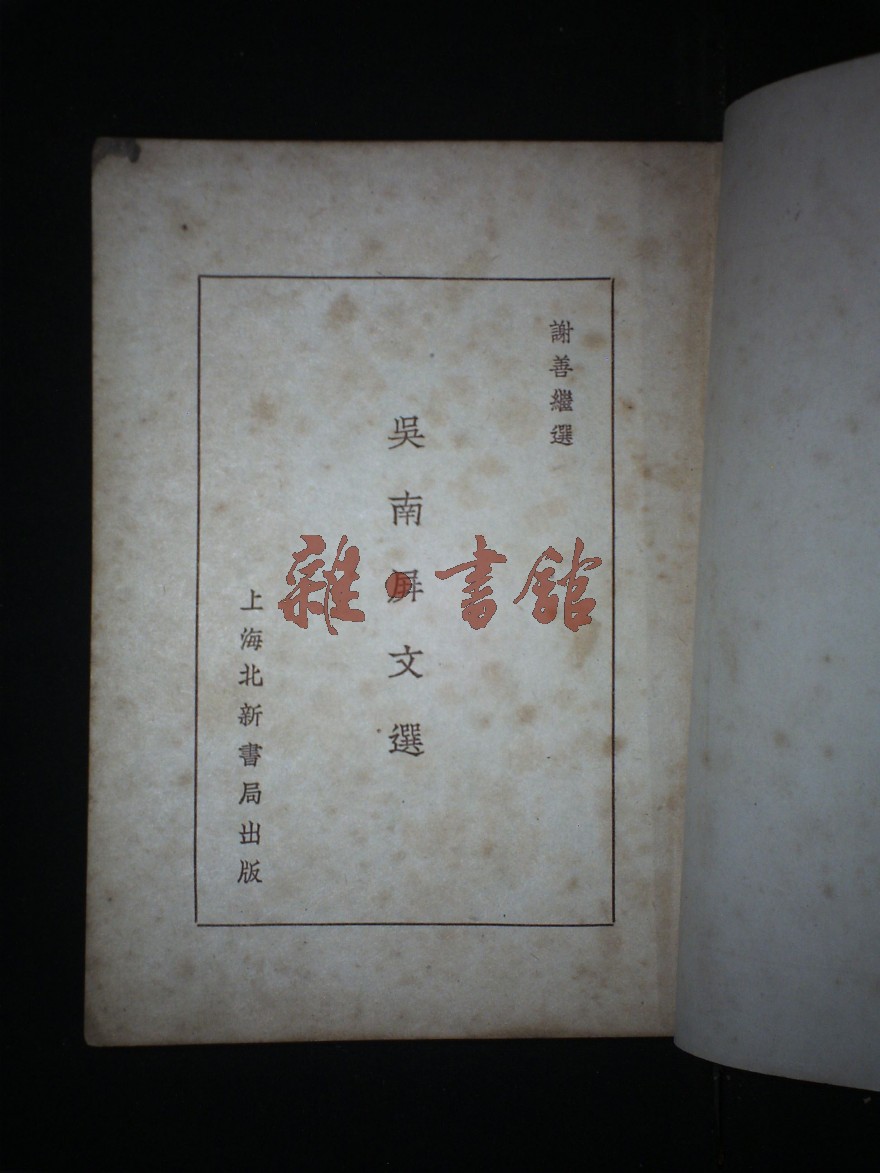 謝善繼選
吳南屏文選
上海北新書局出版
雜·書館